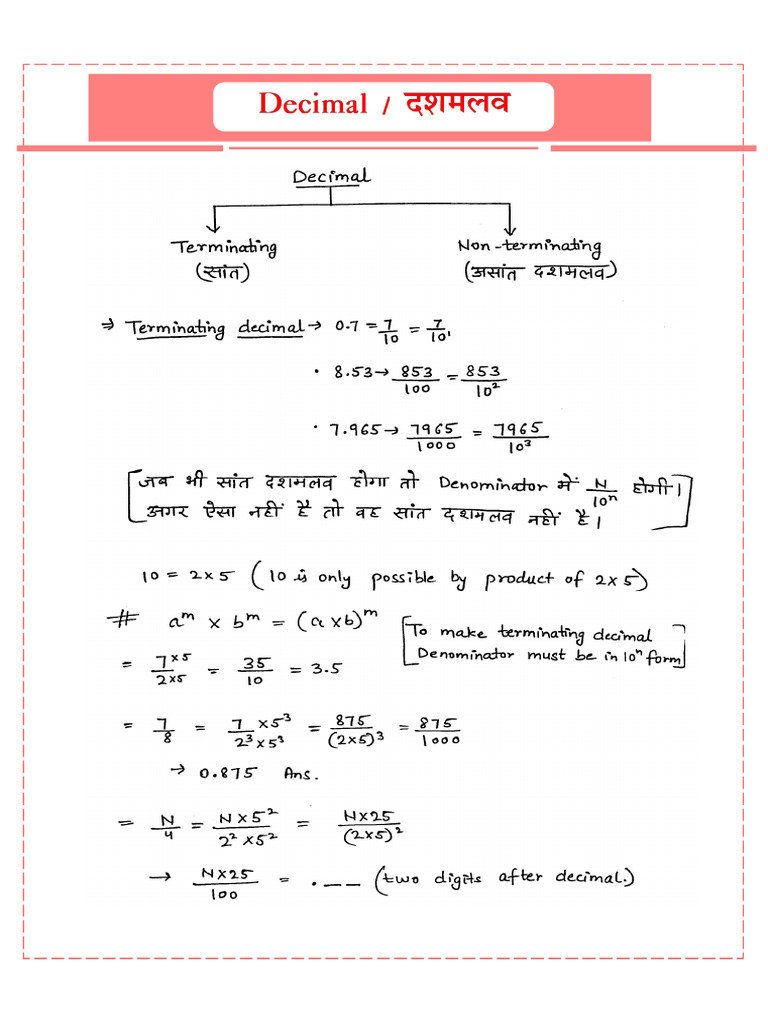 Decimal / दशमलव
Decimal
Terminating Non-terminating
(सांत) (असांत दशमलव)
⇒ Terminating decimal → 0.7 = 7/10 = 7/10¹
• 8.53 → 853/100 = 853/10²
• 7.965 → 7965/1000 = 7965/10³
[जब भी सांत दशमलव होगा तो Denominator में N/10ⁿ होगी।
अगर ऐसा नहीं है तो वह सांत दशमलव नहीं है।]
10 = 2×5 (10 is only possible by product of 2×5)
# aᵐ × bᵐ = (a×b)ᵐ
[To make terminating decimal
Denominator must be in 10ⁿ form]
= 7×5/2×5 = 35/10 = 3.5
= 7/8 = 7×5³/2³×5³ = 875/(2×5)³ = 875/1000
→ 0.875 Ans.
= N/4 = N×5²/2²×5² = N×25/(2×5)²
→ N×25/100 = .__ (two digits after decimal.)